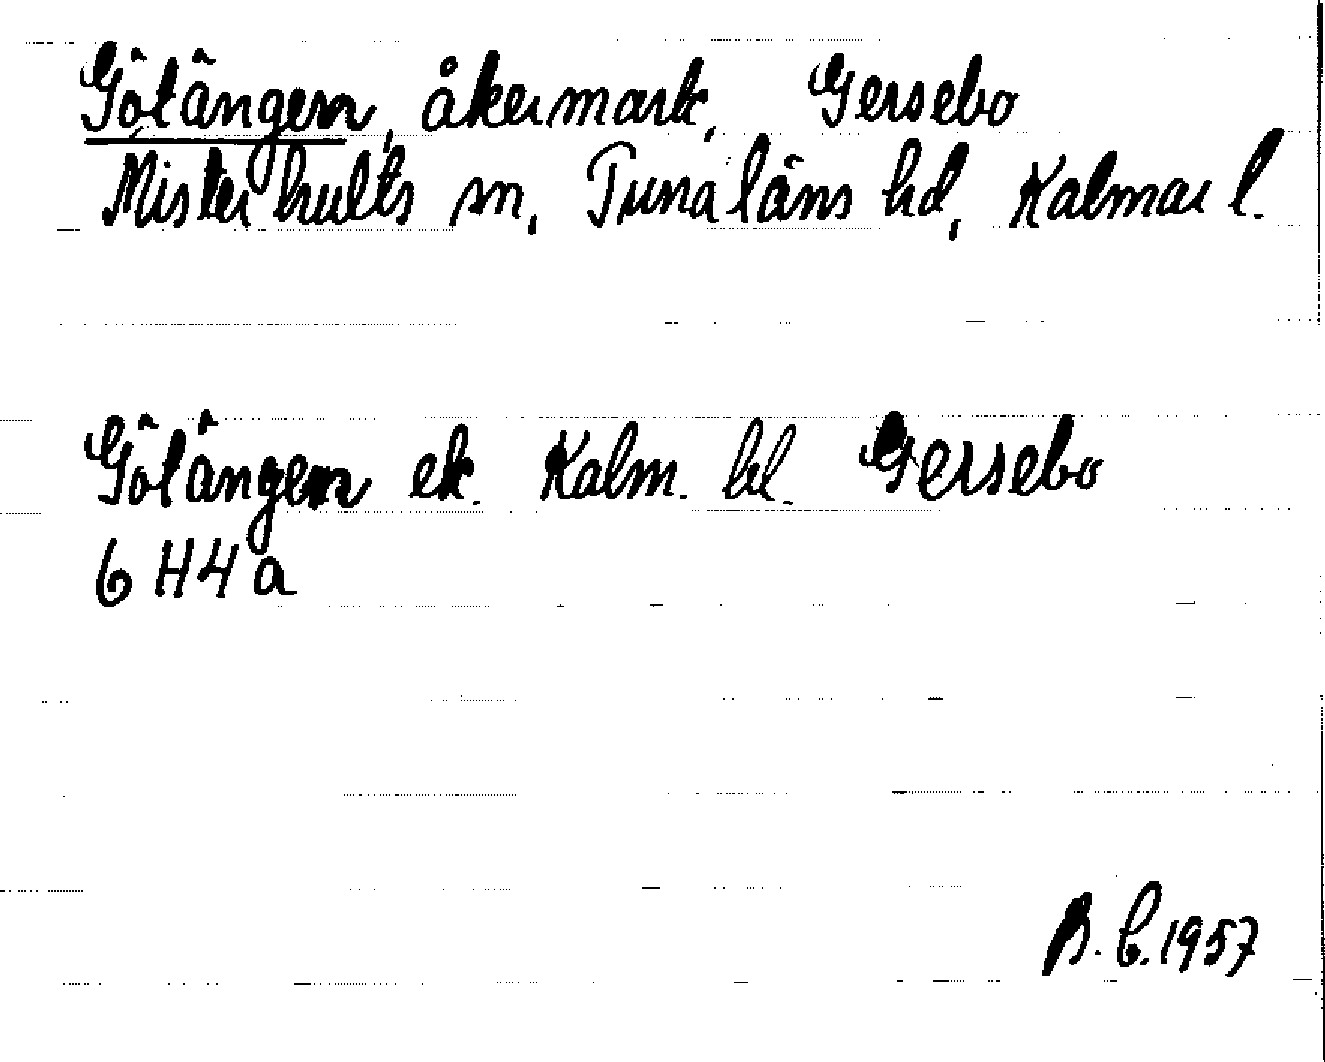 Götängen, åkermark, Gersebo
Misterhults sn, Tunaläns hd, Kalmar l.
Götängen ek. Kalm. bl. Gersebo
6 H 4 a
B. C. 1957